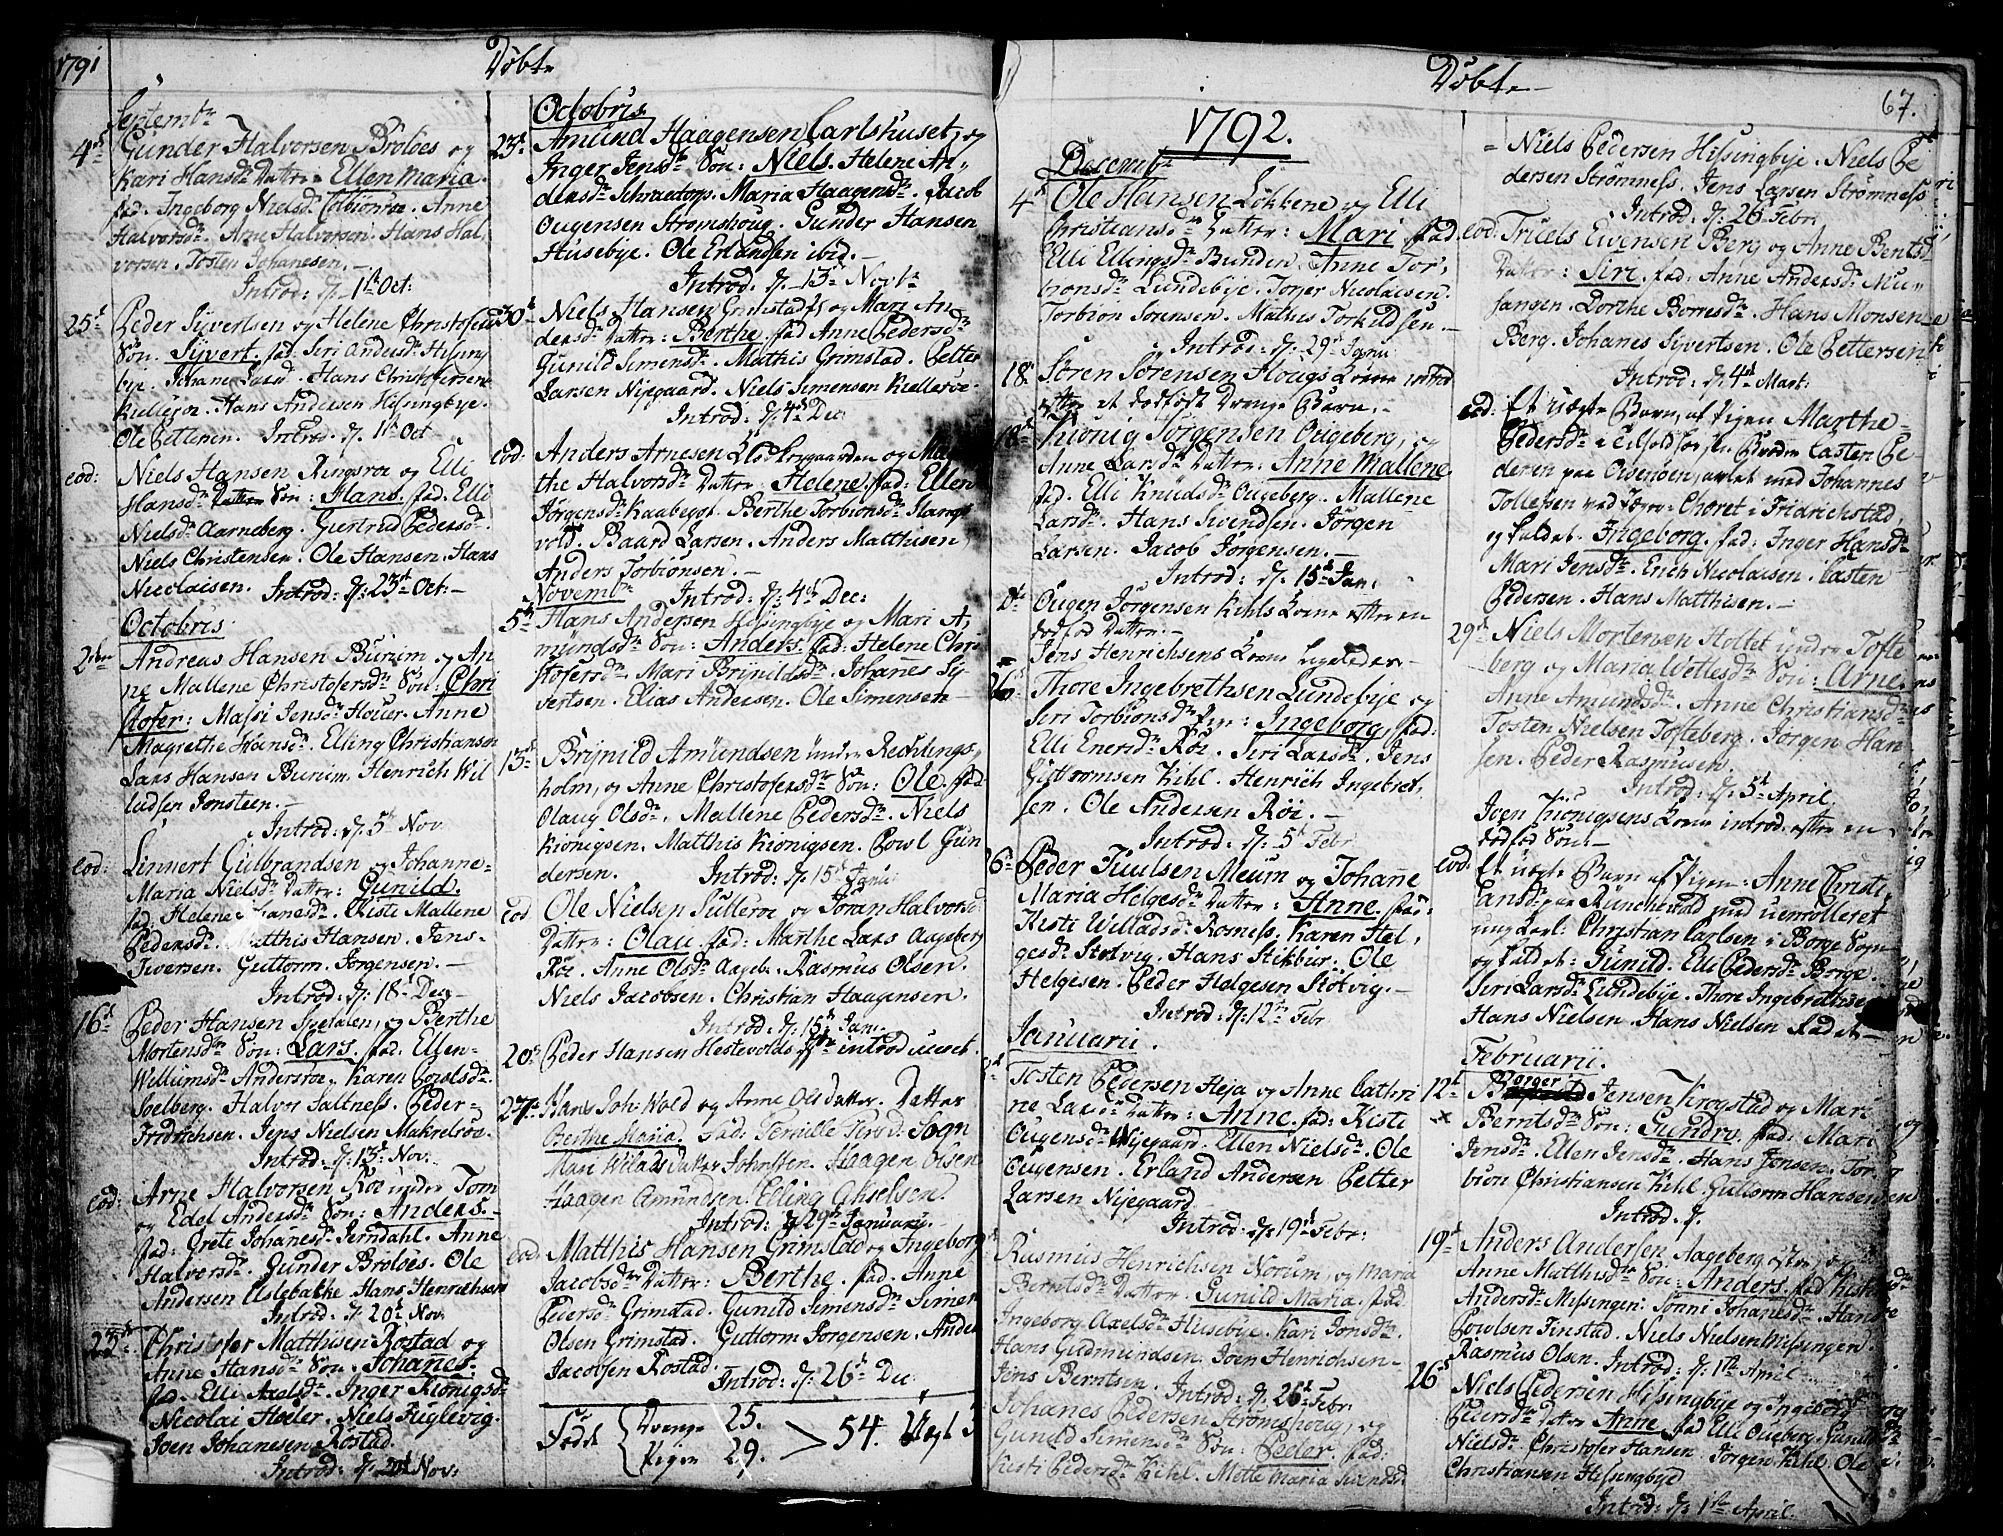 1791
Döbte
Septembr
4de Gunder Halvorsen Broloes og
Kari Hansdr Datter Ellen Maria.
fad. Ingeborg Nielsdr Anne
Halvorsdr. Arne Halvorsen. Hans Hal
vorsen. Tosten Johanesen.
Introd: d. 1te Oct:
25d Peder Syvertsen og Helene Christofersd
Sön: Syvert. fad. Siri Andersdr Hissing
bye. Johane Larsd. Hans Christofersen
Kiellesöe. Hans Andersen Hissingbye.
Ole Pettersen. Introd. d. 1te Oct
eod: Niels Hansen Ringsroe og Elli
Hansdr Sön: Hans. fad. Elli
Nielsdr Aarneberg. Giertrud Pedersdr.
Niels Christensen. Ole Hansen. Hans
Nicolaisen. Introd: d: 23d Oct:
Octobris
2den Andreas Hansen Burum og An
ne Mallene Christofersdr Sön: Chri
stofer: Massi Jensdr Houer. Anne
Magrethe Hansdr. Elling Christiansen
Lars Hansen Burum. Henrich Wil
ludsen Jonsteen.
Introd: d. 5t Nov
eod: Linnert Gulbrandsen og Johanne
Maria Nielsdr Datter: Gunild.
fad. Helene Johanesdr. Kisti Mallene
Pedersdr. Matthis Hansen. Jens
Iversen. Guttorm Jorgensen.
Introd: d. 18 Dec
16d Peder Hansen Spetalen, og Berthe
Mortensdr Sön: Lars. fad. Ellen
Willumsdr Andersröe. Karen Powlsdr.
Soelberg. Halvor Saltness. Peder
Fridrichsen. Jens Nielsen Makrelröe.
Introd: d: 13d Nov:
eod: Arne Halvorsen Röe under Tom
og Edel Andersdr Sön: Anders.
fad: Grete Johanesdr Jerndahl. Anne
Halvorsdr. Gunder Broloes. Ole
Andersen Aslebakke Hans Henrichsen
Introd: d. 20d Nov
23d Christofer Matthisen Rostad og
Anne Hansdr Sön. Johannes
fad. Elli Axelsdr. Inger Kionigsdr
Nicolai Hoeler. Niels Fuglevig.
Joen Johanesen Rostad.
Introd: d. Nov:
Octobris
23d Amund Haagensen Carlshuset, og
Inger Jensdr Sön: Niels. Helene An
dersdr Schraatorp. Maria Haagensdr. Jacob
Ougensen Stromshoug. Gunder Hansen
Husebye. Ole Erlandsen ibid.
Introd: d. 13d Novbr
30d Niels Hansen Grimstad, og Mari An
dersdr Datter: Berthe. fad Anne Pedersdr
Gunild Simensdr. Mathis Grimstad. Petter
Larsen Nygaard. Niels Simensen Kiellesöe.
Introd: d: 4d Dec
eod: Anders Arnesen Klokkergaarden og Mar
the Halvorsdr Datter Helene. fad: Ellen
Jörgensdr Kaabegot. Berthe Torbionsdr Slangs
vold. Baard Larsen. Anders Matthisen,
Anders Torbionsen.
Introd: d: 4d Dec:
Novembr
5te Hans Andersen Hissingbye og Mari A
mundsdr Sön: Anders. fad: Helene Chri
stofersdr. Mari Brynildsdr. Johanes Sy
vertsen. Elias Andersen. Ole Simensen
13d Brynild Amundsen under Rechlings
holm, og Anne Christofersdr Sön: Ole. fad
Olaug Olsdr. Mallene Pedersdr. Niels
Kionigsen. Matthis Kionigsen. Powl Gun
dersen. Introd: d. 15d Janu
eod Ole Nielsen Sulleröe og Joran Halvorsd
Datter: Olau. fad: Marthe Lars Aageberg
Röe. Anne Olsdr Aageb. Rasmus Olsen.
Niels Jacobsen. Christian Haagensen.
Introd: d. 15d Jan:
20d Peder Hansen Hestevolds introduceret.
27de Hans Joh: Wold og Anne Olsdatter. Datter
Berthe Maria. Fad: Pernille Throd: Sogn
Mari Wilads datter Johnsten. Haagen Olsen
Haagen Amundsen. Elling Akselsen.
Introd: d 29d January.
eod: Matthis Hansen Grimstad og Ingeborg
Jacobsdr Datter: Berthe. fad. Anne
Pedersdr Grimstad. Gunild Simensdr Simen
Olsen Grimstad. Guttorm Jorgensen. Ander
Jacobsen Rostad. Introd: d: 26d Dec
Födde { Drenge 25. Pigen 29. > 54.
Döbte
67.
1792.
Decembr
4d Ole Hansen Lökkene og Elli
Christiansdr Datter: Mari fad.
Elli Ellingsdr Bunden. Anne Tor
bionsdr Lundebye. Torger Nicolaisen.
Torbion Sorensen. Mathis Torkildsen.
Introd: d. 29d Janu
18d Sören Sörensen Hougs Kone introd
efter et dödfödt Drenge Barn.
18d Kionig Jörgensen Ougeberg, og
Anne Larsdr Datter: Anne Mallene
fad. Elli Knudsdr Ougeberg. Mallene
Larsdr. Hans Svendsen. Jörgen
Larsen. Jacob Jörgensen.
Introd: d: 15d Jan:
Dt Ougen Jörgensen Kihls Kone efter en
dodfod Datter.
Jens Henrichsens Kone ligeledes
26d Thore Ingebrethsen Lundebye og
Siri Torbionsdr Pigen: Ingeborg fad:
Elli Enersdr Röe. Siri Larsdr. Jens
Guttormsen Kihl. Henrich Ingebret
sen. Ole Andersen Röi.
Introd: d. 5d Febr
26d Peder Juulsen Meum og Johane
Maria Helgesdr Datter: Anne. fad:
Kisti Willadsdr Romess. Karen Hel
gesdr Stotvig. Hans Stikbur. Ole
Helgesen. Peder Helgesen Slötvig.
Introd: d: 12te Febr
Januarii.
1d Tosten Pedersen Heja og Anne Cathri
ne Larsdr Datter: Anne. fad: Kisti
Ougensdr Nyegaard. Ellen Nielsdr. Ole
Ougensen. Erland Andersen Petter
Larsen Nyegaard
Introd: d. 19d Febr:
Rasmus Henrichsen Norum, og Maria
Berntsdr Datter. Gunild Maria. fad:
Ingeborg Axelsdr Husebye. Kari Jonsdr.
Hans Gudmundsen. Joen Henrichsen
Jens Berntsen. Introd: d. 26d Febr.
Johanes Pedersen Stromshoug, og
Gunild Simensdr Sön: Peder. fad:
Kisti Pedersdr Kihl. Mette Maria Svendsd.
Niels Pedersen Hissingbye. Niels Pe
dersen Strömness. Jens Larsen Strömness
Introd: d: 26 Febr.
eod: Truels Evensen Berg og Anne Bentsd
Datter: Siri. fad: Anne Andersdr Mu
sangen. Dorthe Borresdr. Hans Monsen
Berg. Johanes Syvertsen. Ole Pettersen
Introd: d: 4d Mart:
eod: Et uægte Barn, af Pigen Marthe
Pedersdr i hos Broder Casten Pe
dersen paa Overöen, avlet med Johannes
Tollefsen ved Choret i Friderichstad,
og kaldet. Ingeborg. fad: Inger Hansdr
Mari Jensdr. Erich Nicolaisen. Casten
Pedersen. Hans Matthisen.
29d Niels Mortensen Holtet under Tofte
berg og Maria Wettesdr Sön: Arne.
Anne Amundsdr. Anne Christiansdr
Tosten Nielsen Tofteberg. Jorgen Han
sen. Peder Rasmusen
Introd: d: 5d April.
Joen Kionigsens Kone introd. efter en
dodfod Sön.
eod: Et uægte Barn af Pigen: Anne Christi
ansdr paa Runchevold med uenrolleret
ung Karl: Christian Carlsen i Borge Sogn
og kaldet: Gunild. Elli Pedersdr Borge.
Siri Larsdr Lundebye. Thore Ingebrethsen
Hans Nielsen. Hans Nielsen
Februarii.
12d Borger Jensen Krogstad og Mari
x Berntsdr Sön: Gundro. fad: Mari
Jensdr. Ellen Jensdr. Hans Jensen. Tor
biön Christiansen Kihl. Guttorm Hansen
Introd: d.
19d Anders Andersen Aageberg östre, og
Anne Matthisdr Sön: Anders. fad Kisti
Andersdr Missingen. Sönni Johanesdr. Hans
Powlsen Tinstad. Niels Nielsen Missingen.
Rasmus Olsen. Introd: d: 1te April
26d Niels Pedersen Missingbye og Ingeborg
Pedersdr Datter Anne. fad Elli Oueberg. Gunild
Nielsdr. Christofer Hansen. Jorgen Kihl. Ole
Christiansen Hissingbye
Introd: d: 1te April.